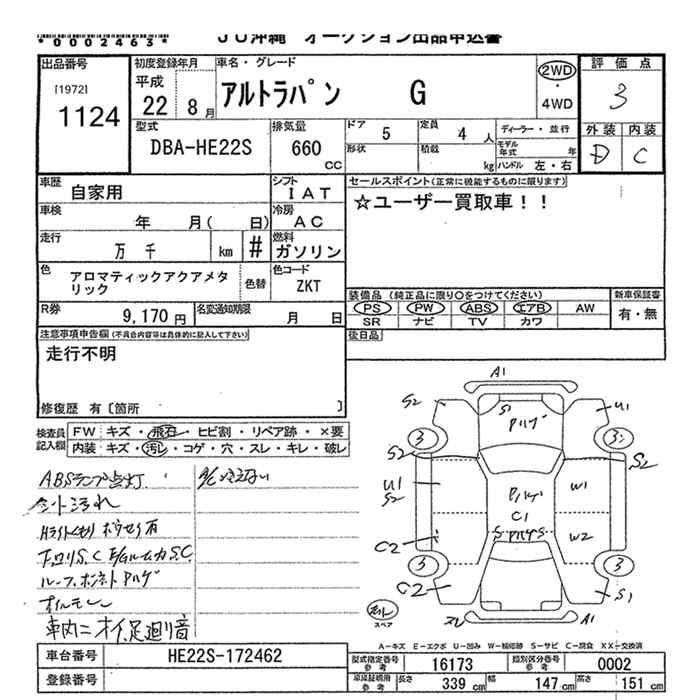 *0002463*
JU沖縄 オークション出品申込書
出品番号
[1972]
1124
初度登録年月
平成
22 8月
車名・グレード
アルトラパン G
2WD
・
4WD
評価点
3
外装 内装
D C
型式
DBA-HE22S
排気量
660
CC
ドア 5
定員 4 人
形状
積載 kg
ディーラー・並行
モデル年式 年
ハンドル 左・右
車歴
自家用
シフト
IAT
車検
年 月( 日)
冷房
AC
走行
万 千 km #
燃料
ガソリン
色
アロマティックアクアメタリック
色替
色コード
ZKT
R券
9,170円
名変通知期限
月 日
セールスポイント(正常に機能するものに限ります)
☆ユーザー買取車!!
装備品 (純正品に限り○をつけてください)
PS PW ABS エアB AW
SR ナビ TV カワ
新車保証書
有・無
後日品
注意事項申告欄(不具合内容等は具体的に記入して下さい)
走行不明
修復歴 有〔箇所 〕
検査員記入欄
FW キズ・飛石・ヒビ割・リペア跡・×要
内装 キズ・汚レ・コゲ・穴・スレ・キレ・破レ
ABSランプ点灯
A/C冷えない
シート汚れ
下回りS.C E/GルームカS.C
ルーフ、ボンネットハゲ
オイルモレ
足廻り音
A1
S2
S1
ハゲ
U1
3
3
S2
S2
U1
S2
ハゲ
C1
W1
W2
C2
C2
3
3
S1
A1
スペア
A-キズ E-エクボ U-凹み W-補修跡 S-サビ C-腐食 XX-交換済
車台番号
HE22S-172462
登録番号
型式指定番号
参考
16173
類別区分番号
参考
0002
車庫証明用
参考
長さ 339 cm
幅 147 cm
高さ 151 cm